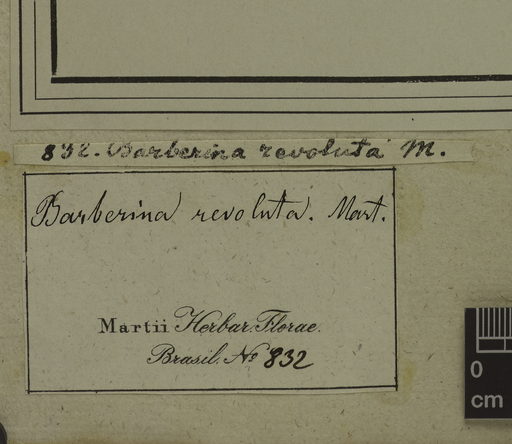 832. Barberina revoluta M.
Barberina revoluta. Mart.
Martii Herbar. Florae.
Brasil. No 832
0
cm